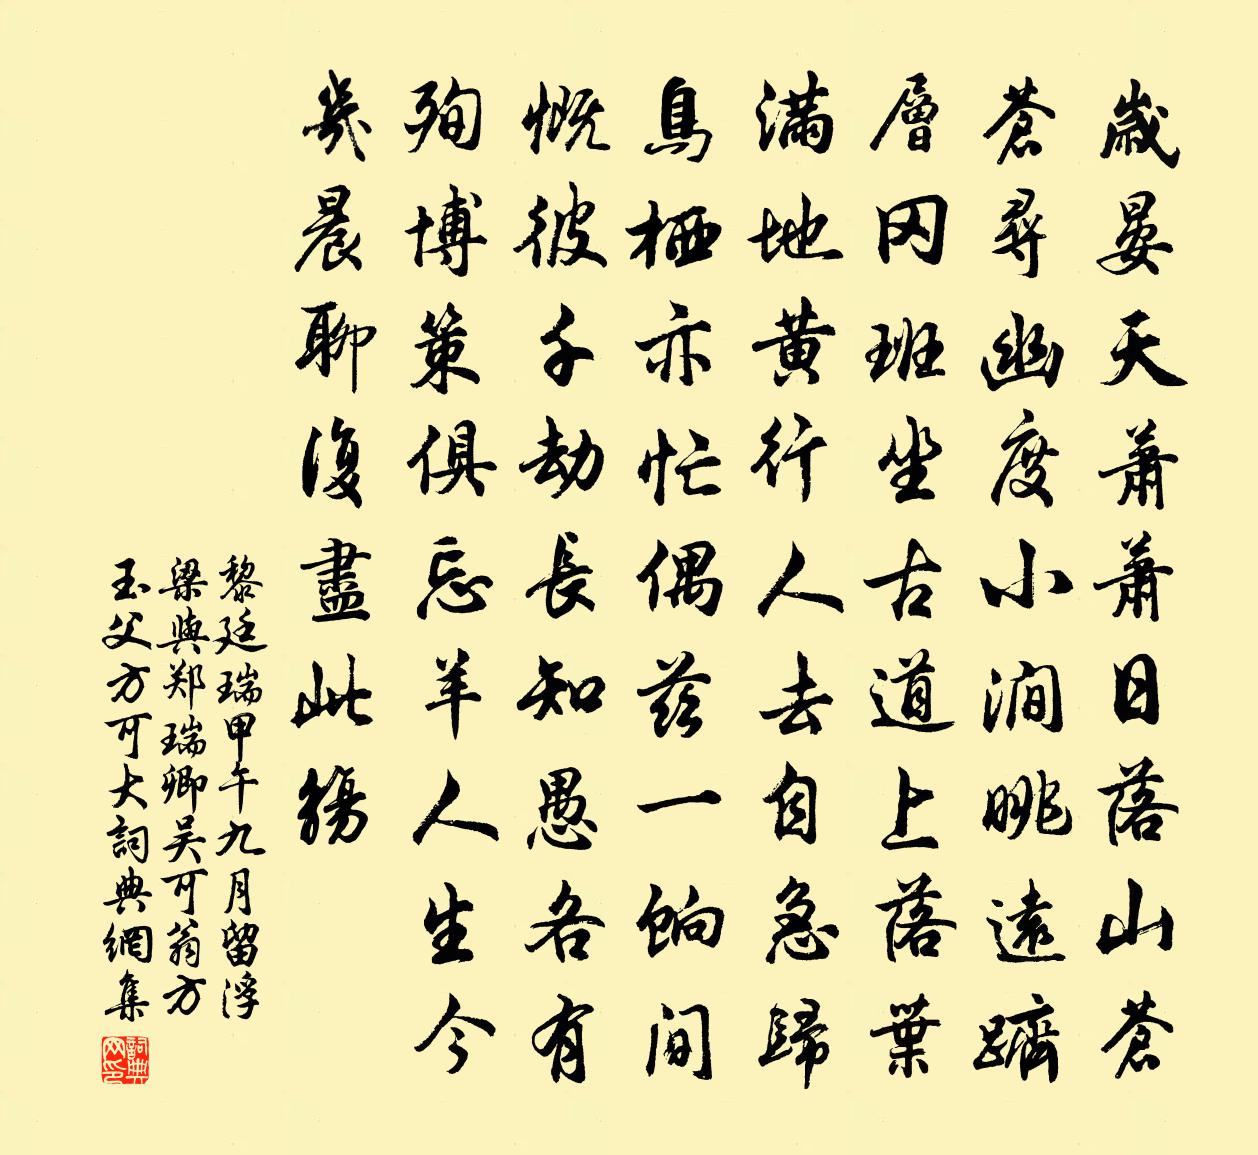 歲晏天蕭蕭日落山蒼
蒼尋幽度小澗眺遠躋
層冈班坐古道上落葉
滿地黃行人去自急歸
鳥栖亦忙偶茲一餉間
慨彼千劫長知愚各有
殉博策俱忘羊人生今
幾晨聊復盡此觴
黎廷瑞甲午九月留浮
梁與郑瑞卿吴可翁方
玉父方可大詞典網集
詞典网印